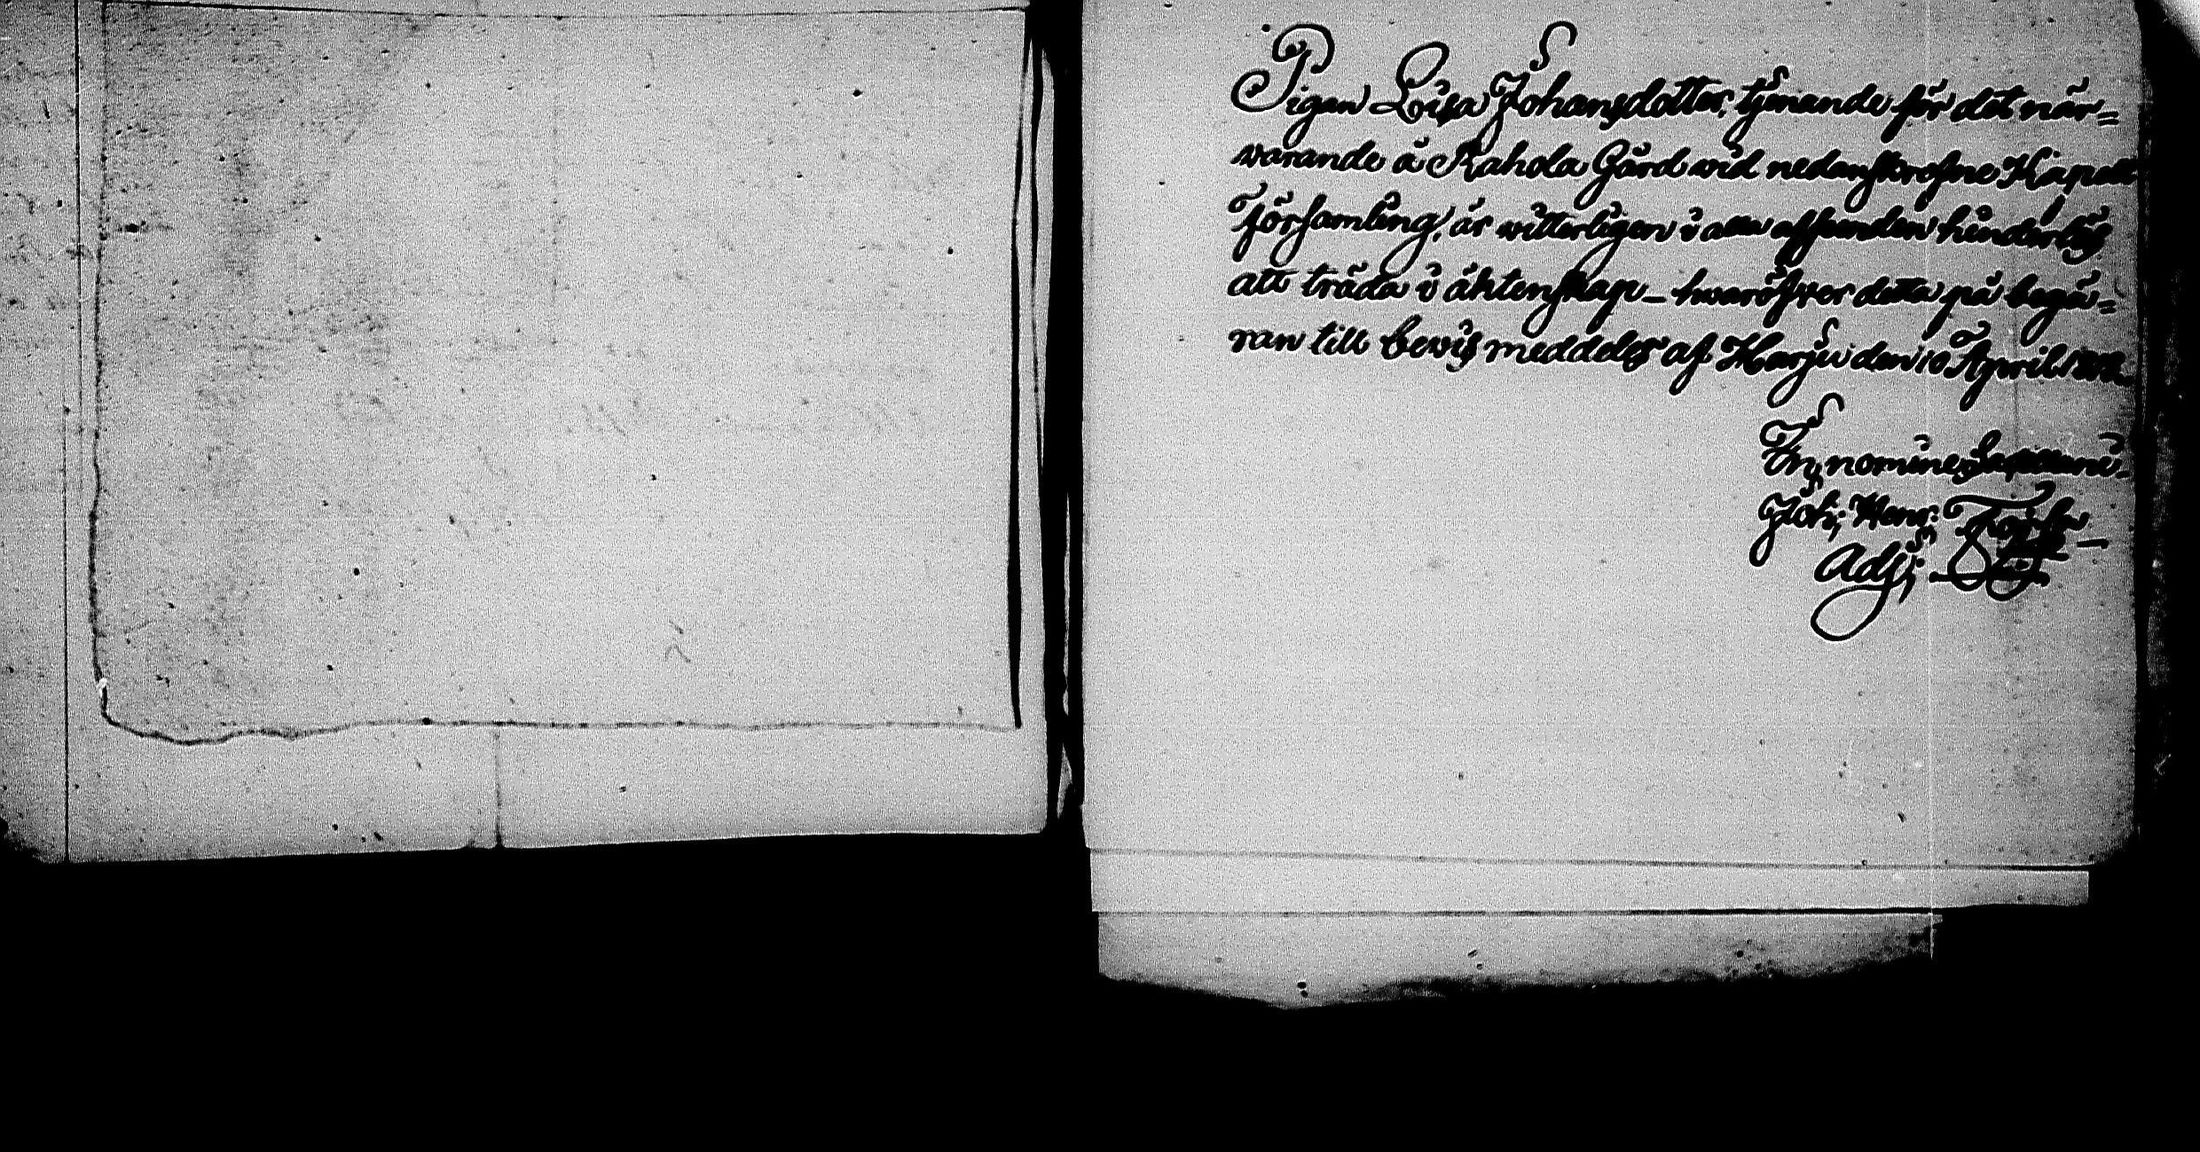 Pigan Lovisa Johansdotter, tjenande för det när=
warande å Kahola Gård wid nedanskrefne Kapell
Församling, är witterligen i alla afseenden hinderlös
att träda i äktenskap – hwaröfwer detta på begä=
ran till bewis meddeles af Harju den 10 April
In nomine
Joh: Henr:
Adj: